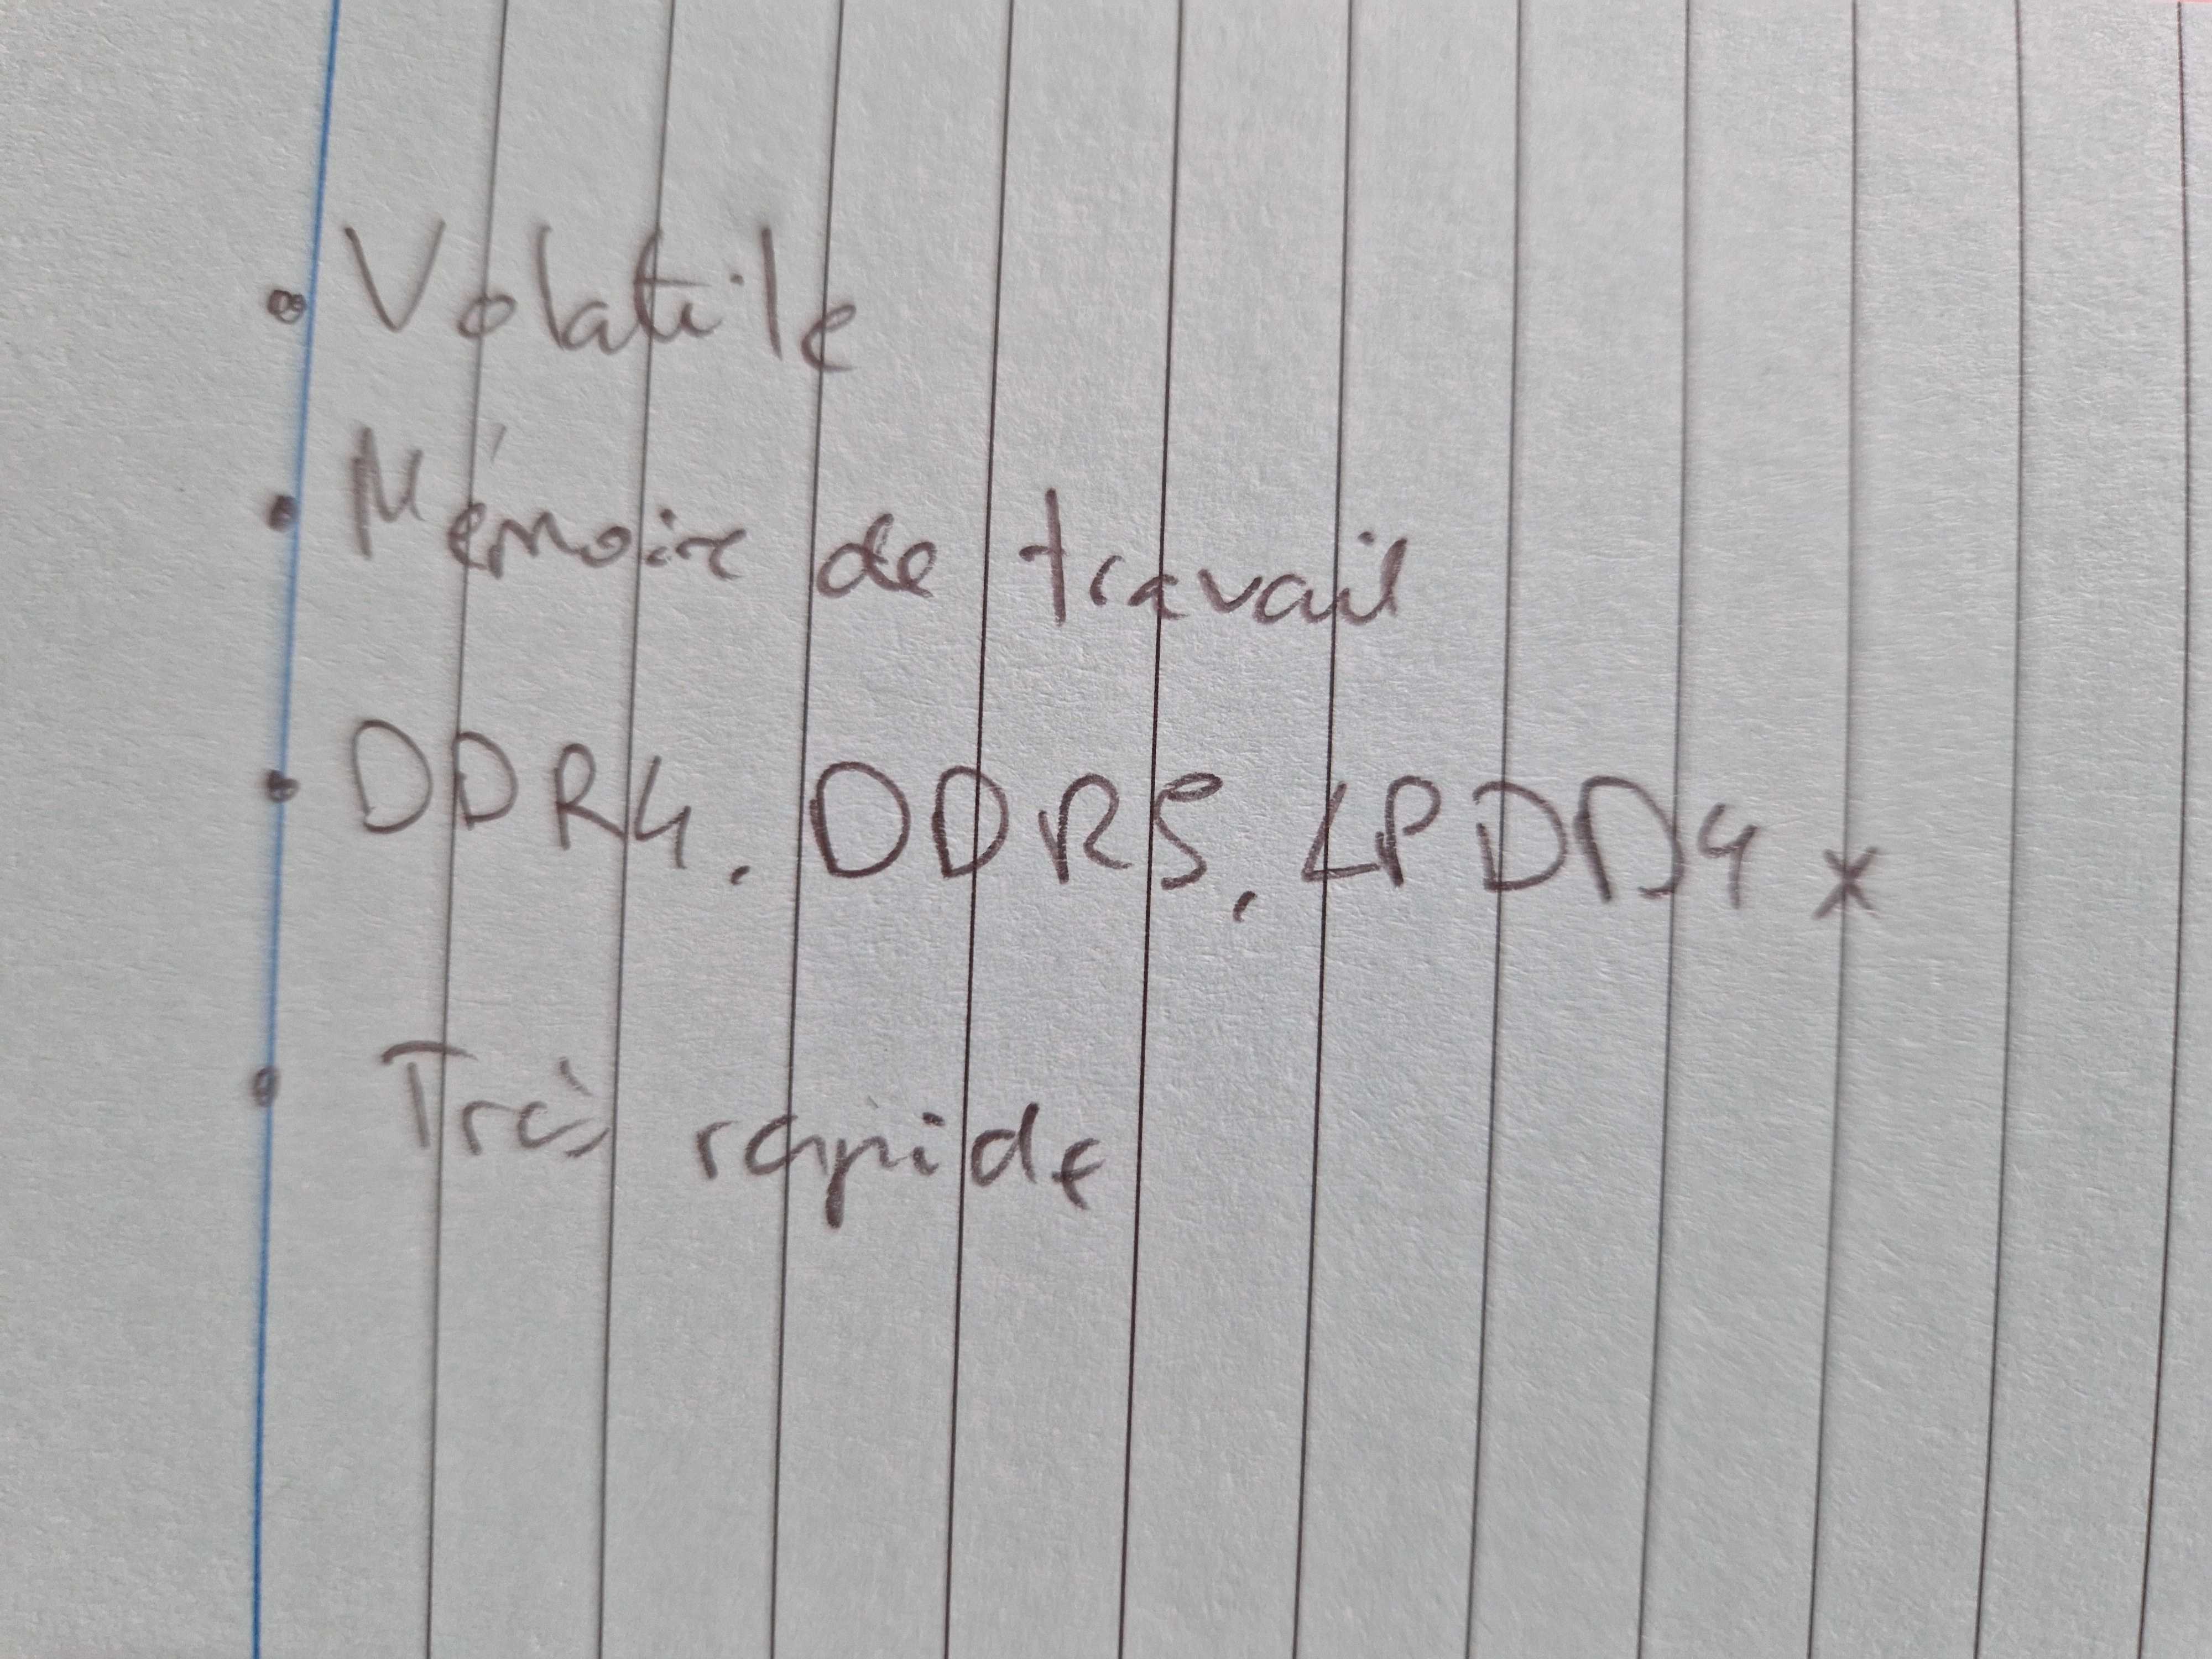 • Volatile
• Mémoire de travail
• DDR4, DDR5, LPDDR4x
• Très rapide